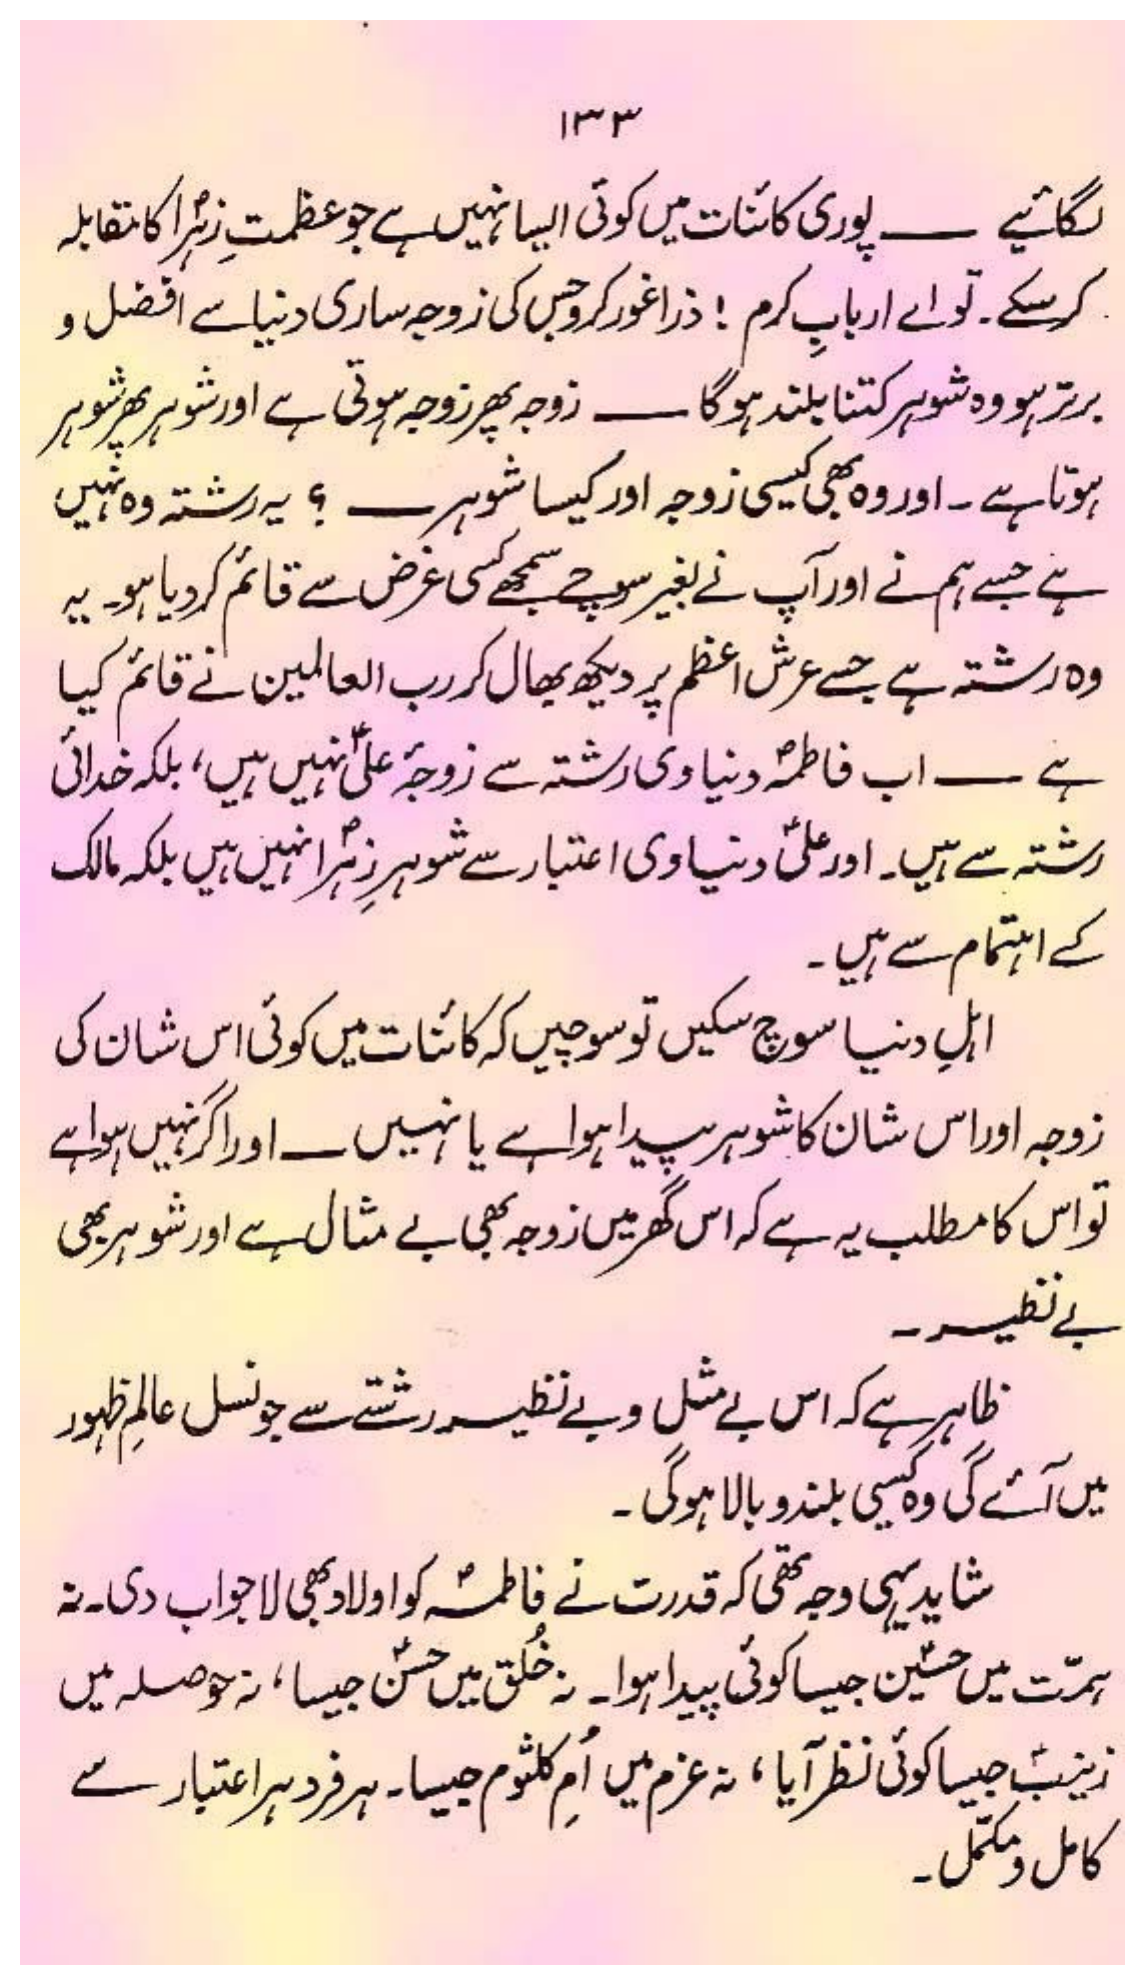 ۱۳۳
لگائیے ــــ پوری کائنات میں کوئی ایسا نہیں ہے جو عظمتِ زہراؑ کا مقابلہ
کر سکے۔ تو اے اربابِ کرم ! ذرا غور کرو جس کی زوجہ ساری دنیا سے افضل و
برتر ہو وہ شوہر کتنا بلند ہوگا ــــ زوجہ پھر زوجہ ہوتی ہے اور شوہر پھر شوہر
ہوتا ہے ۔ اور وہ بھی کیسی زوجہ اور کیسا شوہر ــــ ؟ یہ رشتہ وہ نہیں
ہے جسے ہم نے اور آپ نے بغیر سوچے سمجھے کسی غرض سے قائم کر دیا ہو۔ یہ
وہ رشتہ ہے جسے عرش اعظم پر دیکھ بھال کر رب العالمین نے قائم کیا
ہے ــــ اب فاطمہؑ دنیاوی رشتہ سے زوجۂ علیؑ نہیں ہیں، بلکہ خدائی
رشتہ سے ہیں۔ اور علیؑ دنیاوی اعتبار سے شوہرِ زہراؑ نہیں ہیں بلکہ مالک
کے اہتمام سے ہیں ۔
اہلِ دنیا سوچ سکیں تو سوچیں کہ کائنات میں کوئی اس شان کی
زوجہ اور اس شان کا شوہر پیدا ہوا ہے یا نہیں ــــ اور اگر نہیں ہوا ہے
تو اس کا مطلب یہ ہے کہ اس گھر میں زوجہ بھی بے مثال ہے اور شوہر بھی
بے نظیر ۔
ظاہر ہے کہ اس بے مثل و بے نظیر رشتے سے جو نسل عالمِ ظہور
میں آئے گی وہ کیسی بلند و بالا ہوگی ۔
شاید یہی وجہ تھی کہ قدرت نے فاطمہؑ کو اولاد بھی لاجواب دی۔ نہ
ہمّت میں حسینؑ جیسا کوئی پیدا ہوا۔ نہ خُلق میں حسنؑ جیسا، نہ حوصلہ میں
زینبؑ جیسا کوئی نظر آیا، نہ عزم میں اُمِ کلثوم جیسا۔ ہر فرد ہر اعتبار سے
کامل و مکمّل ۔